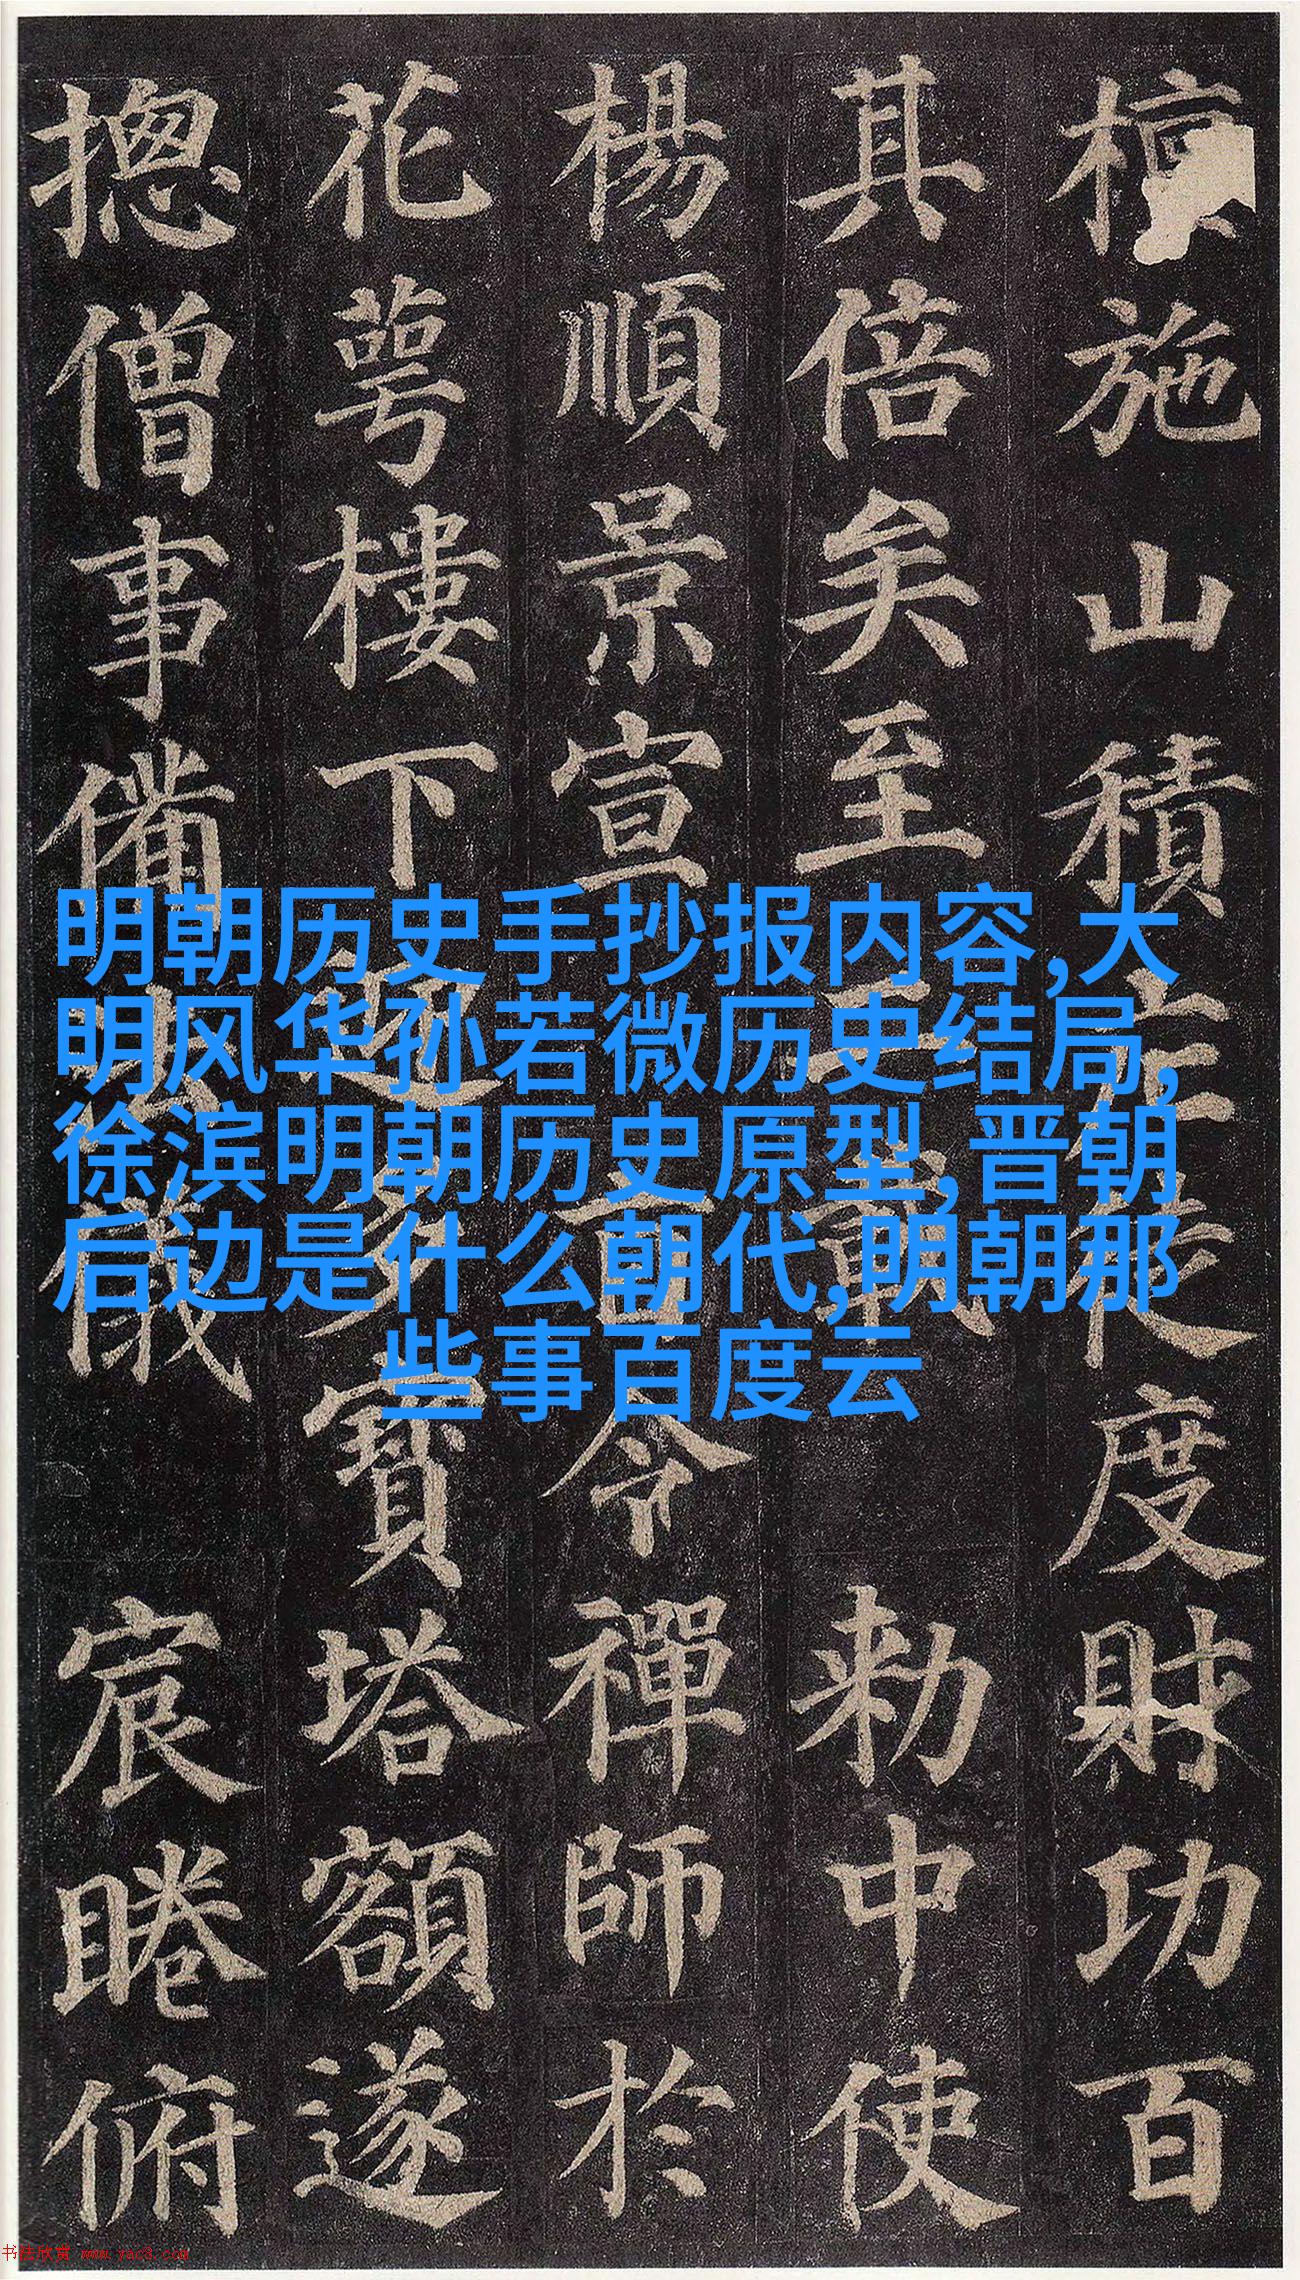 檀施山積庀徒度財功百
其倍矣至二載 勑中使
楊順景宣旨令禪師於
花萼樓下迎多寶塔額遂
摠僧事備法儀 宸睠俯
明朝历史手抄报内容,大
明风华孙若微历史结局,
徐滨明朝历史原型,晋朝
后边是什么朝代,明朝那
些事百度云
书法欣赏 www.yac3.com